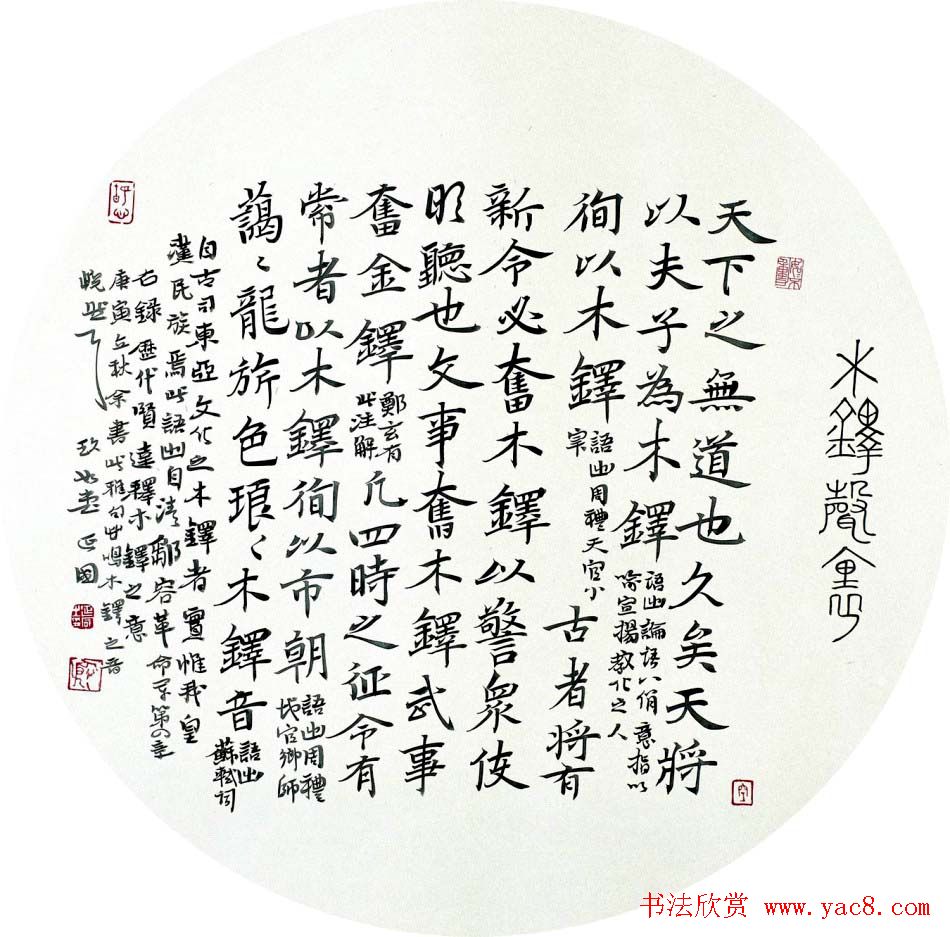 木鐸聲
天下之無道也久矣天將
以夫子為木鐸語出論語八佾意指以
喻宣揚教化之人
徇以木鐸語出周禮天官小
宰古者將有
新令必奮木鐸以警眾使
明聽也文事奮木鐸武事
奮金鐸鄭玄有
此注解凡四時之征令有
常者以木鐸徇以市朝語出周禮
地官鄉師
藹〻龍旂色琅〻木鐸音語出
蘇軾詞
自古司東亞文化之木鐸者實惟我皇
漢民族焉此語出自清鄒容革命軍第四章
右錄歷代賢達釋木鐸之意
庚寅立秋余書此雅句
木鐸之音
书法欣赏 www.yac8.com